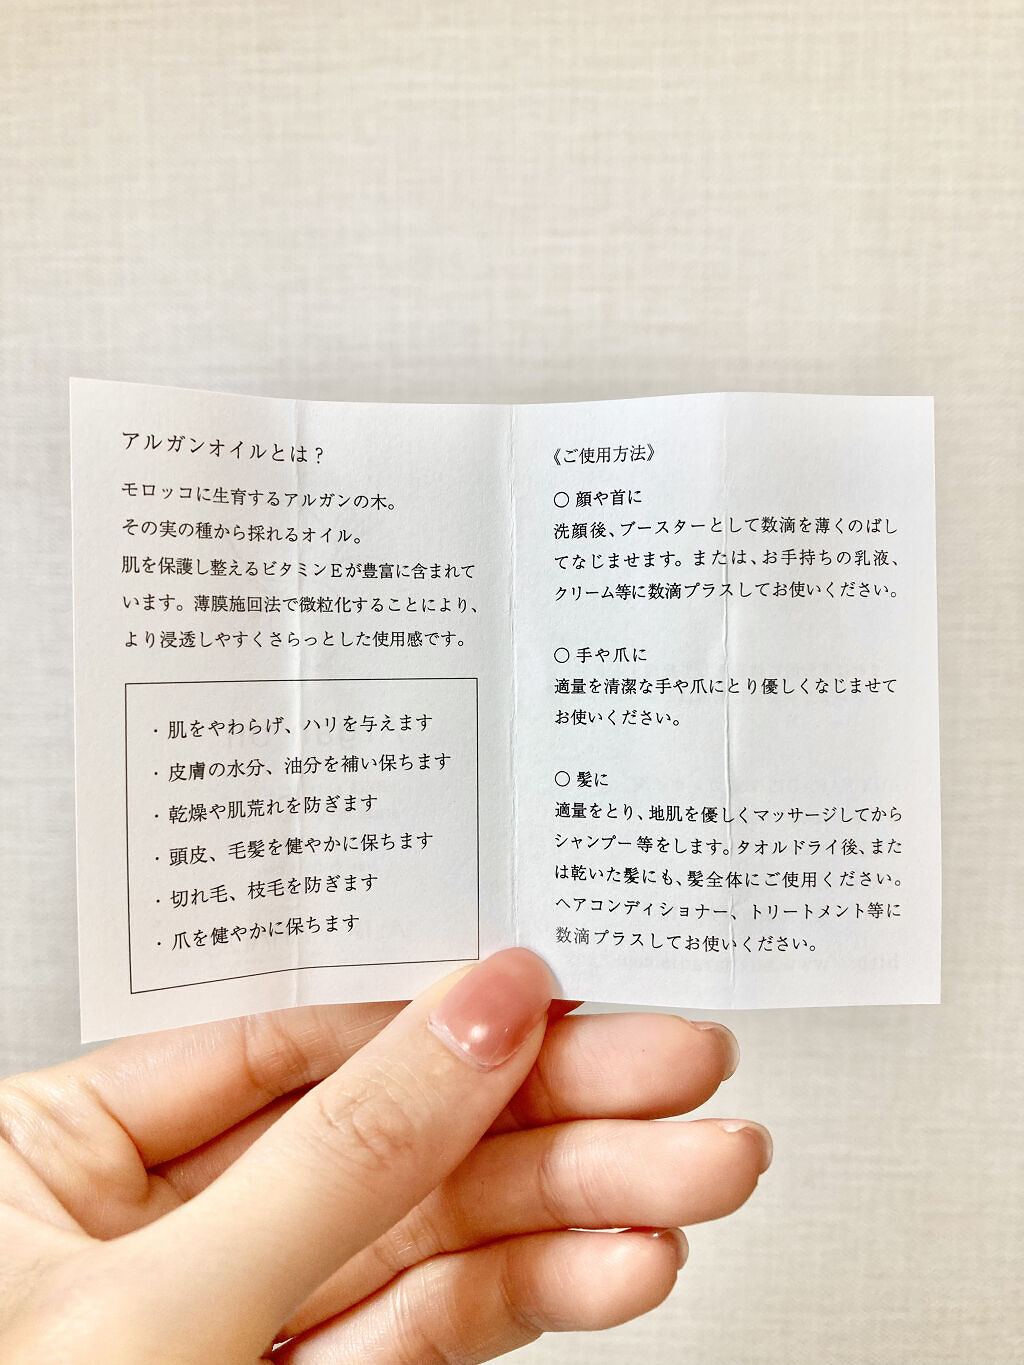 アルガンオイルとは？
モロッコに生育するアルガンの木。
その実の種から採れるオイル。
肌を保護し整えるビタミンEが豊富に含まれて
います。薄膜施回法で微粒化することにより、
より浸透しやすくさらっとした使用感です。
・肌をやわらげ、ハリを与えます
・皮膚の水分、油分を補い保ちます
・乾燥や肌荒れを防ぎます
・頭皮、毛髪を健やかに保ちます
・切れ毛、枝毛を防ぎます
・爪を健やかに保ちます
《ご使用方法》
○ 顔や首に
洗顔後、ブースターとして数滴を薄くのばし
てなじませます。または、お手持ちの乳液、
クリーム等に数滴プラスしてお使いください。
○ 手や爪に
適量を清潔な手や爪にとり優しくなじませて
お使いください。
○ 髪に
適量をとり、地肌を優しくマッサージしてから
シャンプー等をします。タオルドライ後、また
は乾いた髪にも、髪全体にご使用ください。
ヘアコンディショナー、トリートメント等に
数滴プラスしてお使いください。